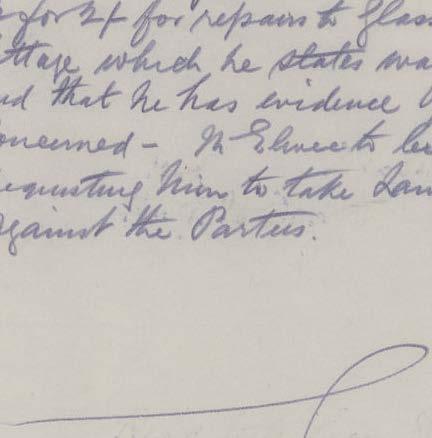 for 2/ for repairs to Glass
ottage which he states wa
nd that he has evidence
oncerned - McElwee to be
equesting him to take Law
against the Parties.